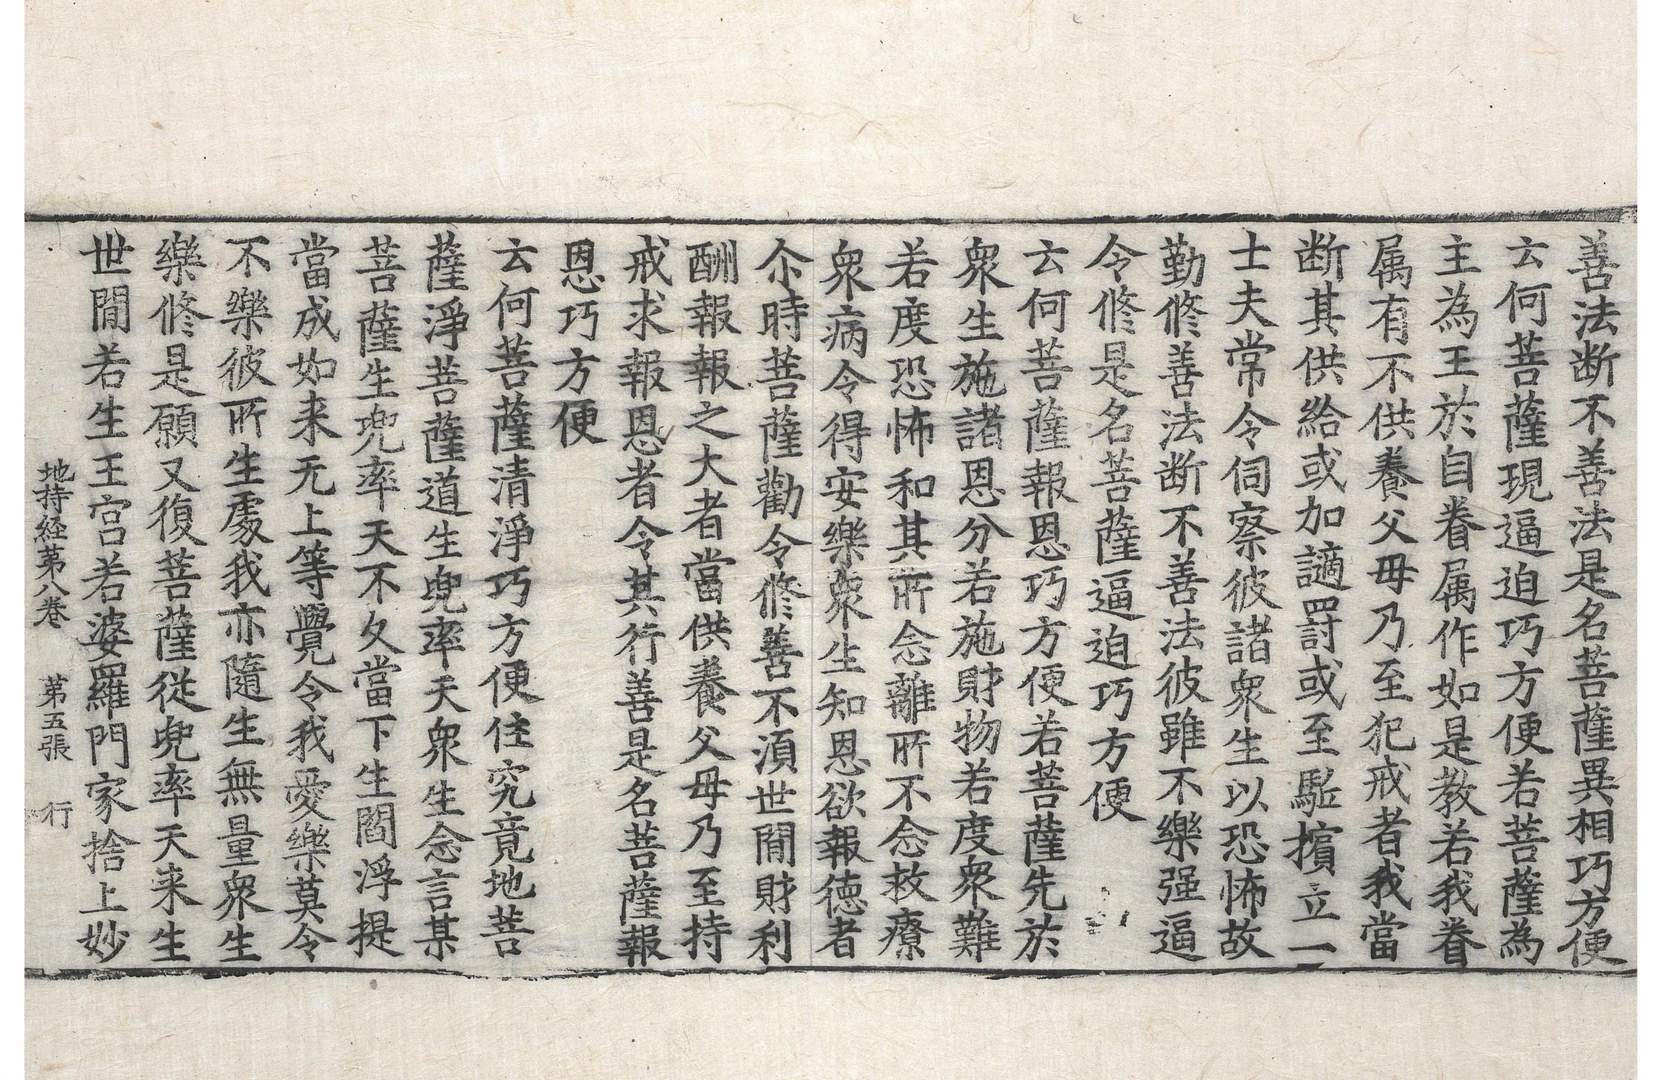 善法断不善法是名菩薩異相巧方便
云何菩薩現逼迫巧方便若菩薩為
主為王於自眷属作如是教若我眷
属有不供養父母乃至犯戒者我當
断其供給或加謫罸或至駈擯立一
士夫常令伺察彼諸衆生以恐怖故
勤修善法断不善法彼雖不樂强逼
令修是名菩薩逼迫巧方便
云何菩薩報恩巧方便若菩薩先於
衆生施諸恩分若施財物若度衆難
若度恐怖和其所念離所不念救療
衆病令得安樂衆生知恩欲報德者
尒時菩薩勸令修善不湏世間財利
酬報報之大者當供養父母乃至持
戒求報恩者令其行善是名菩薩報
恩巧方便
云何菩薩清淨巧方便住究竟地菩
薩淨菩薩道生兜率天衆生念言某
菩薩生兜率天不久當下生閻浮提
當成如来无上等覺令我愛樂莫令
不樂彼所生處我亦隨生無量衆生
樂修是願又復菩薩從兜率天来生
世間若生王宫若婆羅門家捨上妙
地持経苐八卷 苐五張 行